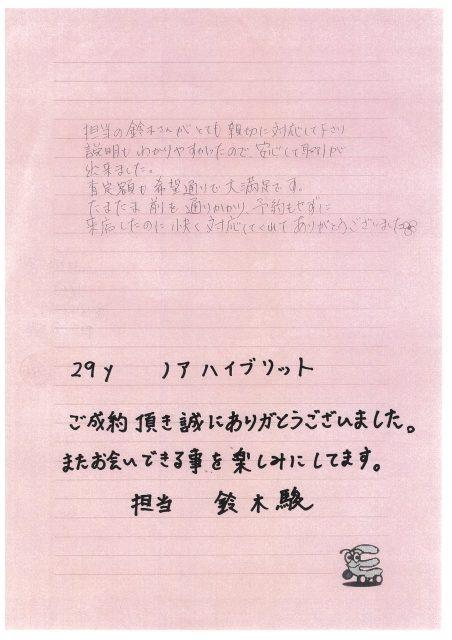 担当の鈴木さんがとても親切に対応して下さり
説明もわかりやすかったので、安心して取引が
出来ました。
査定額も希望通りで大満足です。
たまたま前を通りかかり、予約もせずに
来店したのに快く対応してくれてありがとうございました
29y ノアハイブリット
ご成約頂き誠にありがとうございました。
またお会いできる事を楽しみにしてます。
担当 鈴木駿